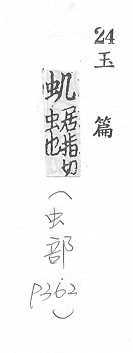 24 玉篇
虮 居指切
虫也
(虫部
p362)